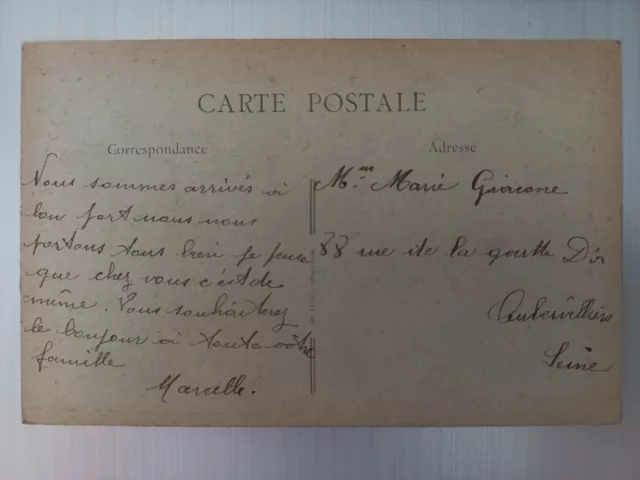 CARTE POSTALE
Correspondance
Nous sommes arrivés ai
bon port nous nous
portons tous bien je pense
que chez vous c'est de
même. Vous souhaiterez
le bonjour ai toute vôtre
famille
Marcelle.
Adresse
Mme Marie Giacone
88 rue de la goutte D'or
Aubervilliers
Seine